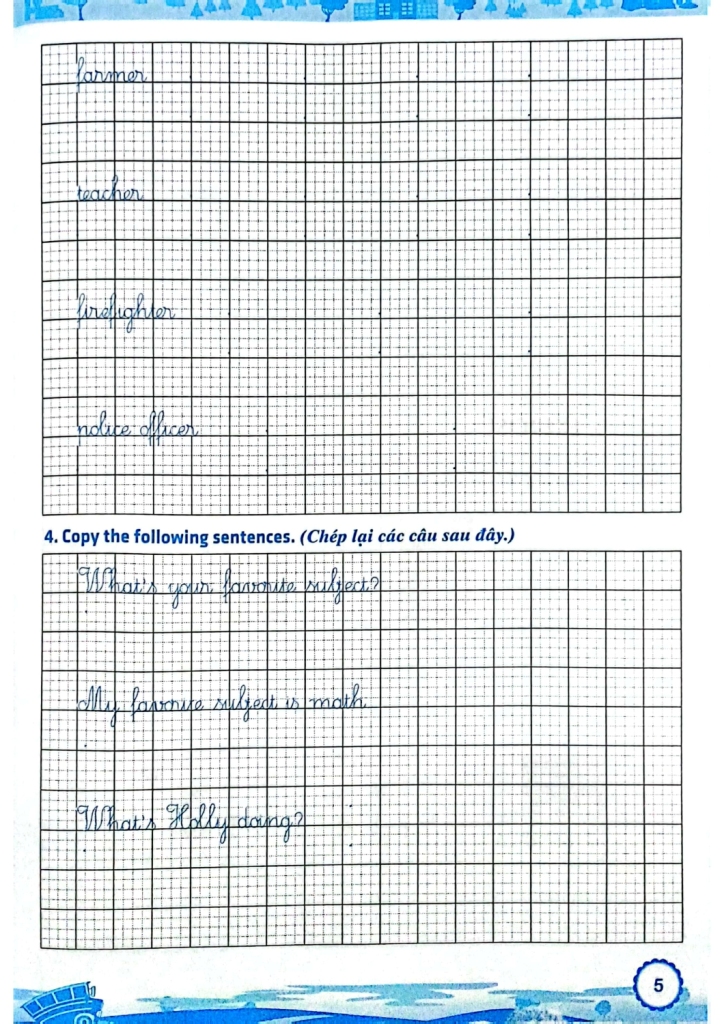 farmer
teacher
firefighter
police officer
4. Copy the following sentences. (Chép lại các câu sau đây.)
What's your favorite subject?
My favorite subject is math.
What's Holly doing?
5